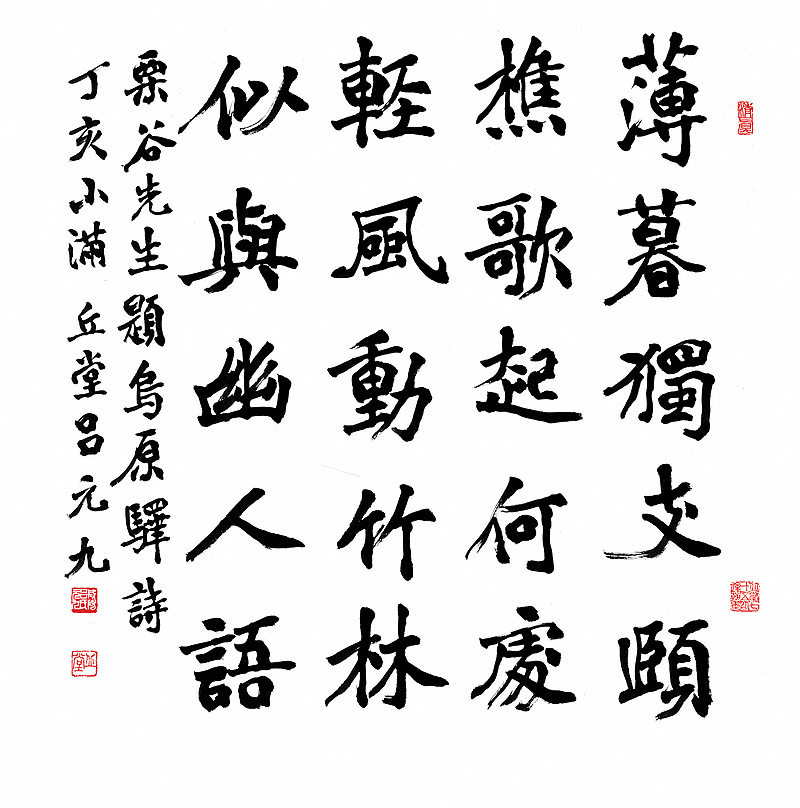 薄暮獨支頤
樵歌起何處
輕風動竹林
似與幽人語
栗谷先生題烏原驛詩
丁亥小滿 丘堂呂元九